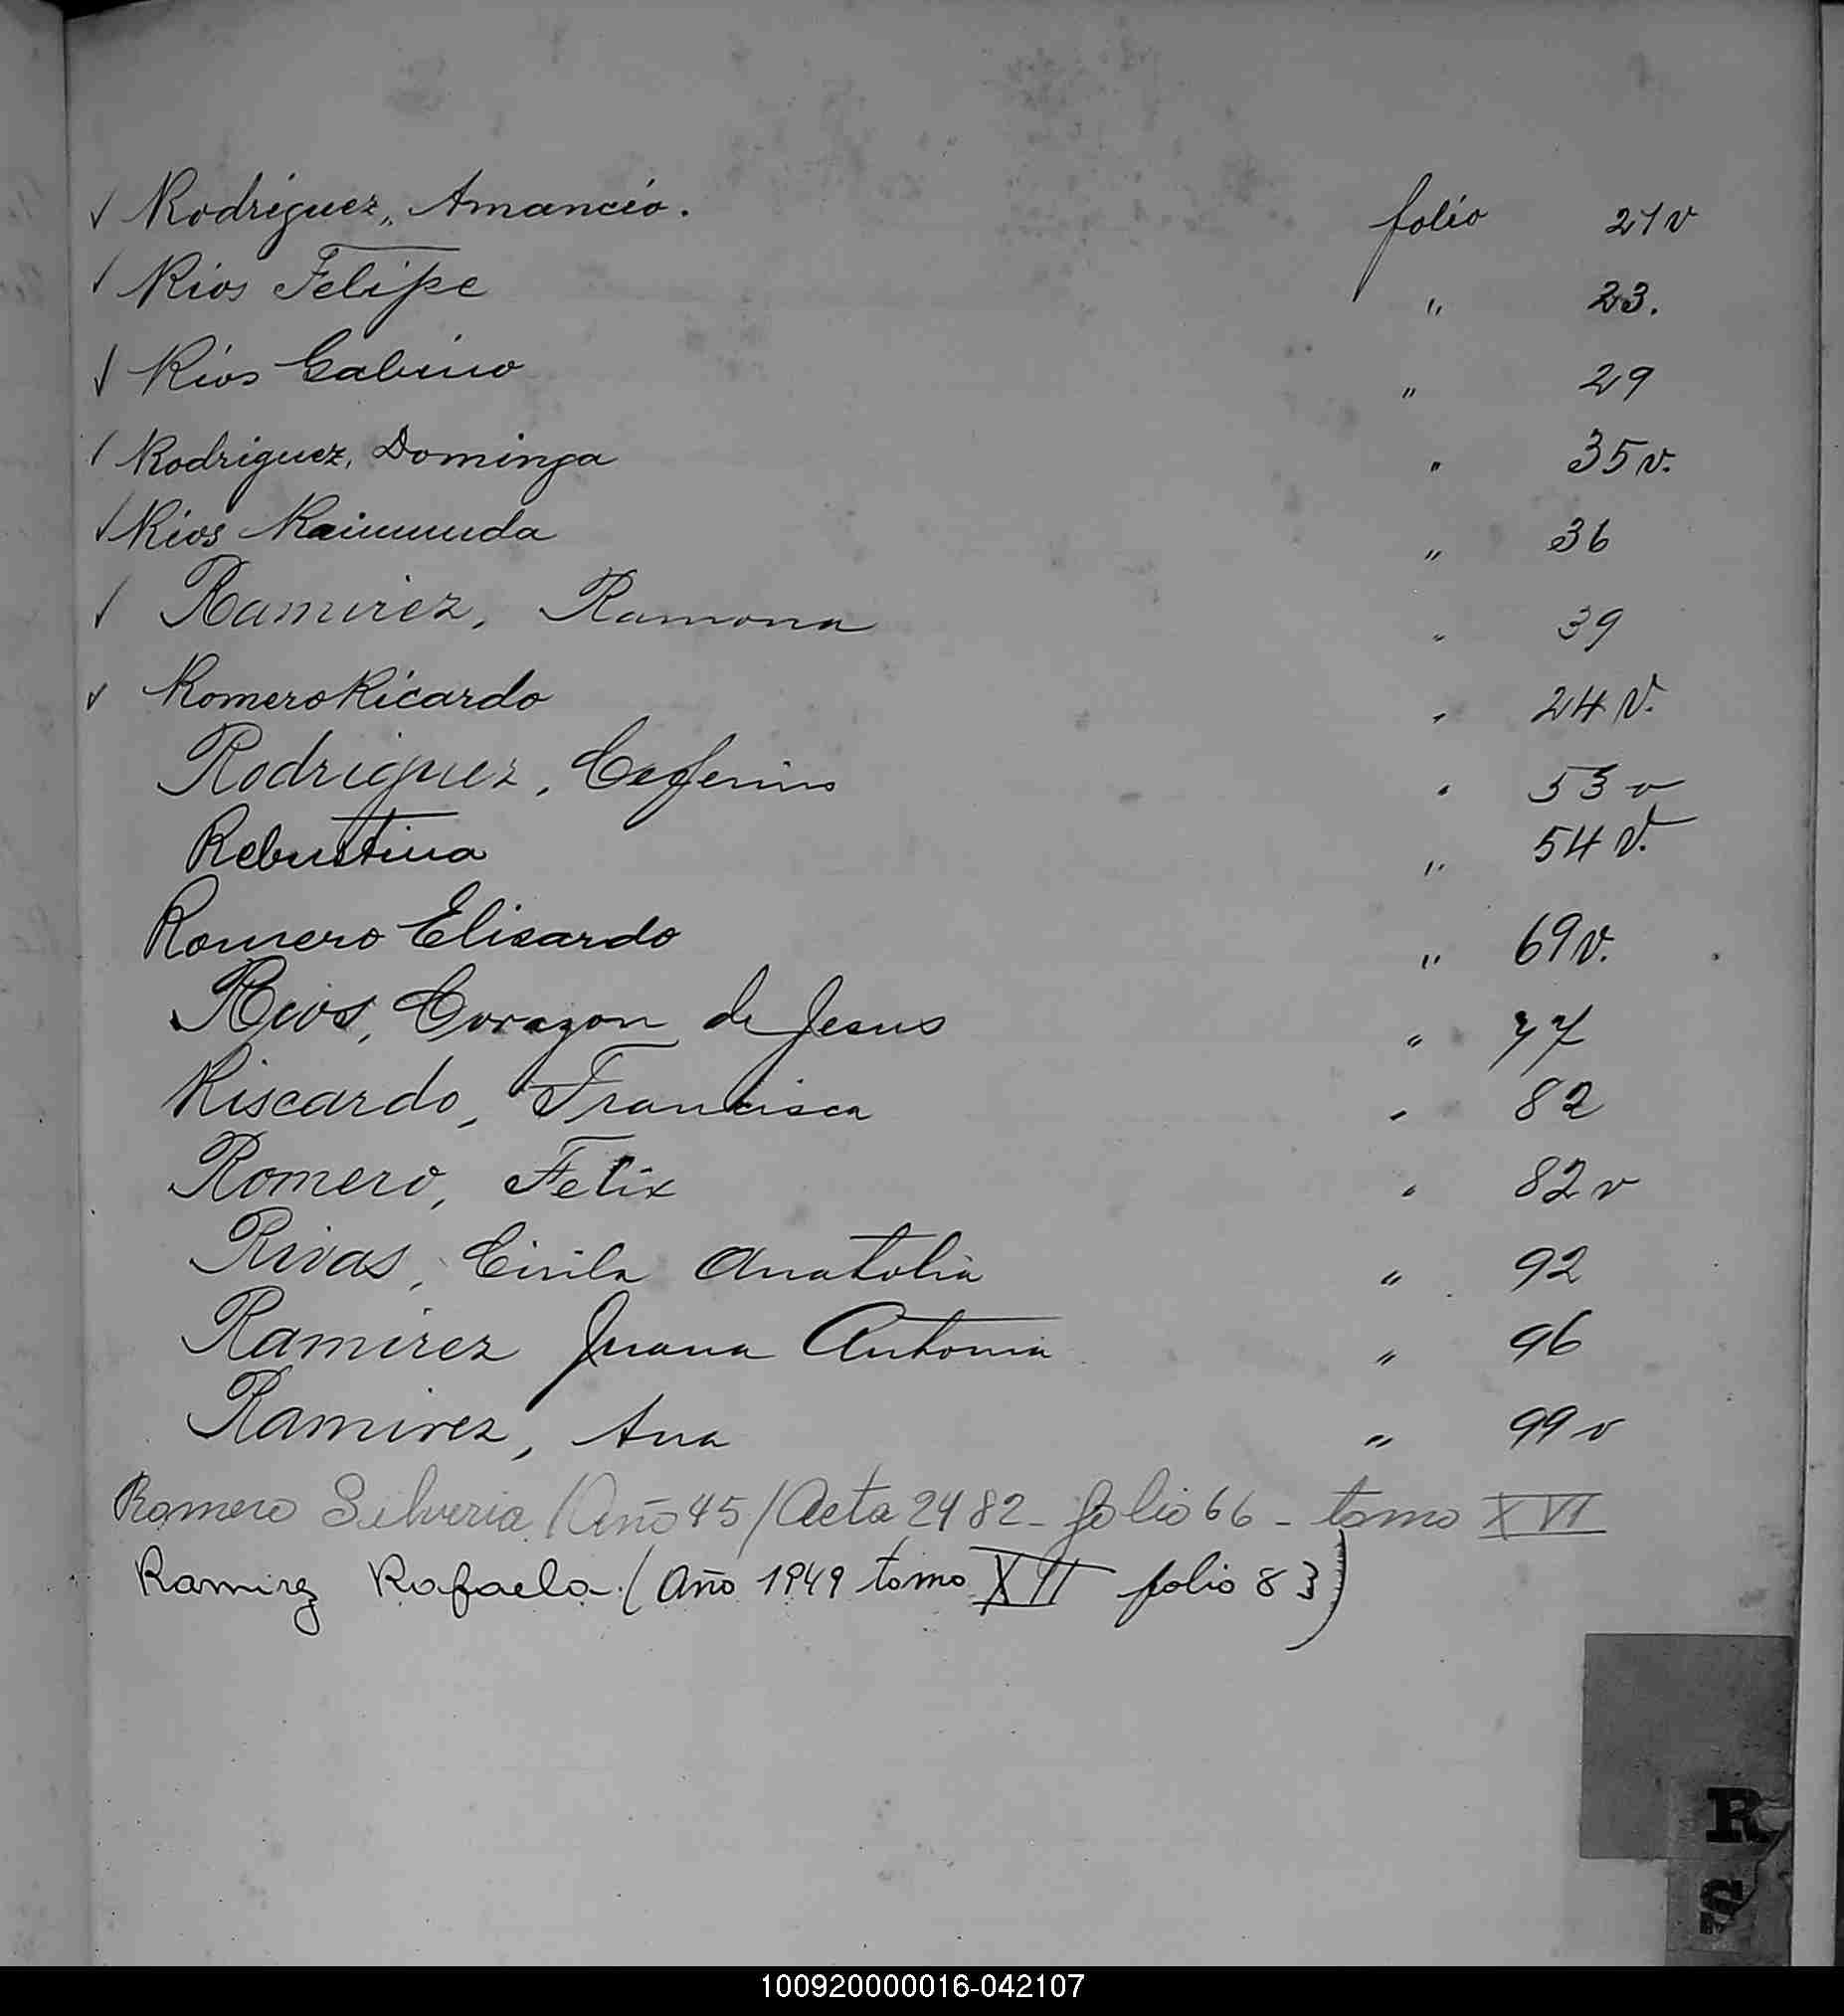 ✓ Rodríguez, Amancio. folio 21 v
✓ Rios Felipe " 23.
✓ Rios Gabino " 29
✓ Rodriguez, Dominga " 35 v.
✓ Rios Raimunda " 36
✓ Ramirez, Ramona " 39
✓ Romero Ricardo " 24 V.
Rodriguez, Ceferino " 53 v
Rebustina " 54 V.
Romero Elisardo " 69 v.
Rios, Corazon de Jesus " 77
Riscardo, Francisca " 82
Romero, Felix " 82 v
Rivas, Cirila Anatolia " 92
Ramirez Juana Antonia " 96
Ramirez, Ana " 99 v
Romero Silveria (Año 45/Acta 2482 - folio 66 - tomo XVI
Ramirez Rafaela. (Año 1949 tomo XII folio 83)
R
S
100920000016-042107